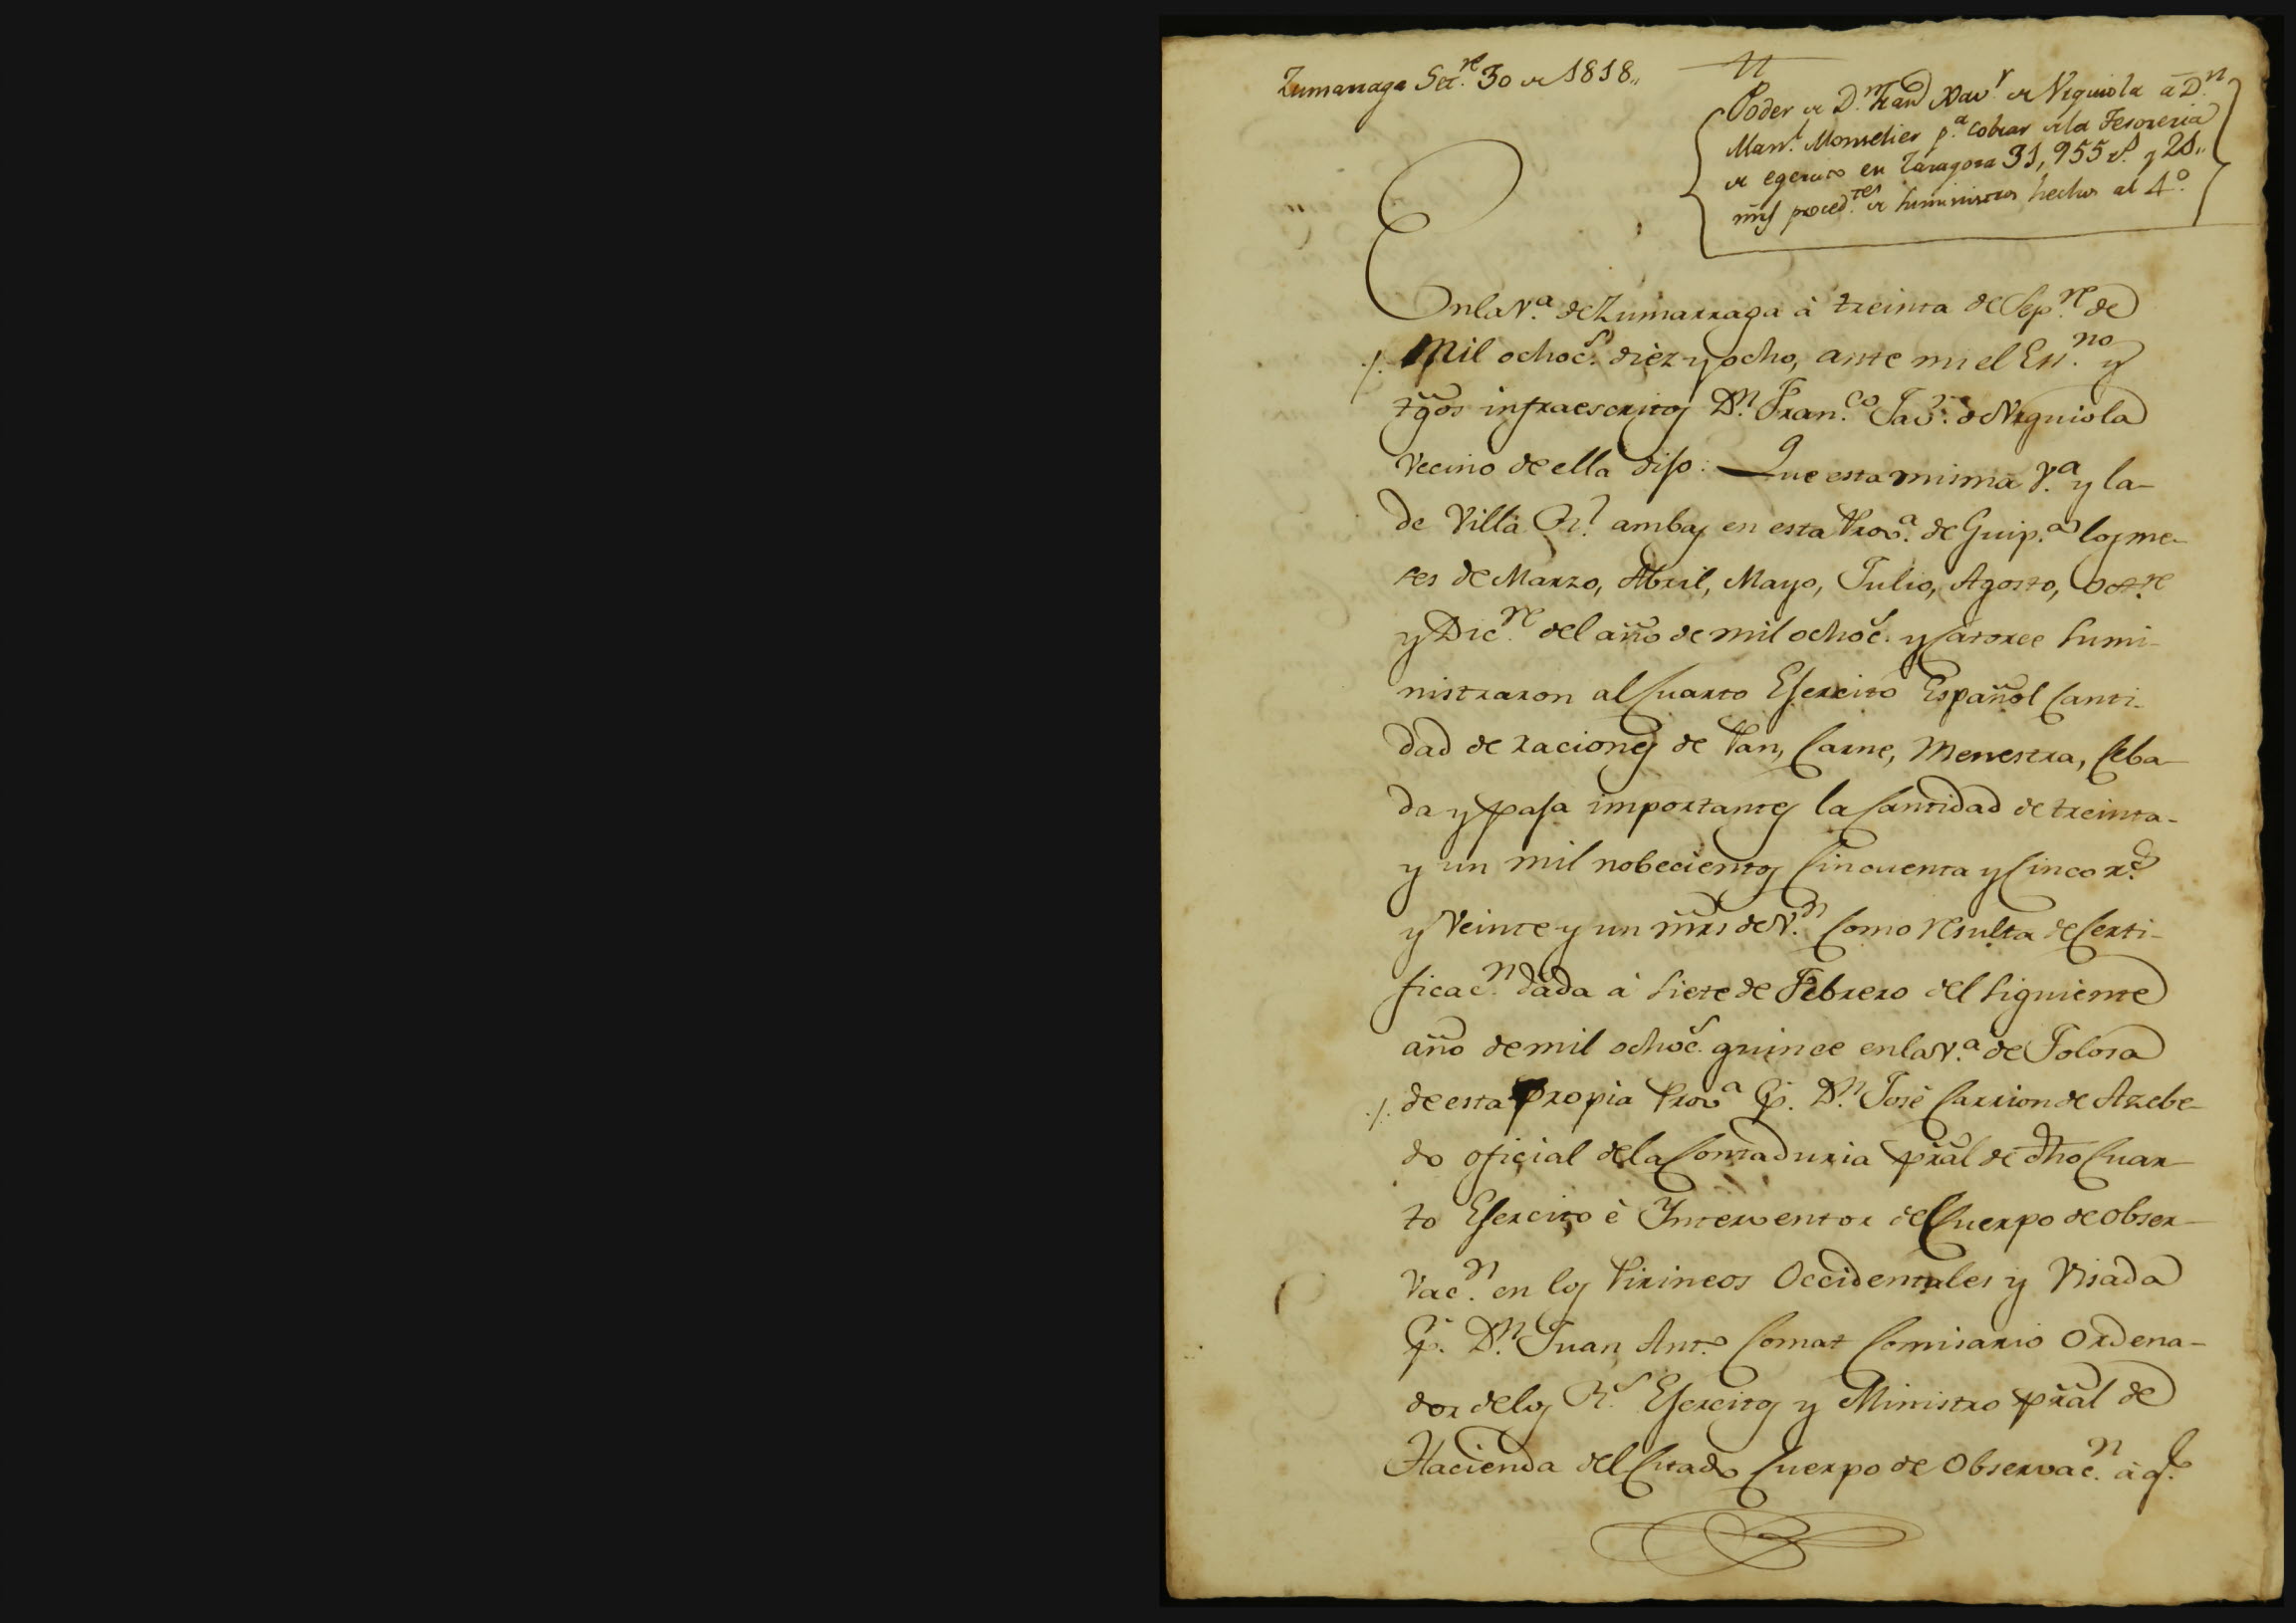 Zumarraga Set.re 30 de 1818„
Poder de D.n Fran.co Xav.r de Urquiola a D.n
Man.l Monselier p.a cobrar de la Tesoreria
de egercito en Zaragoza 31,955 r.s y 21„
mrs proced.tes de suministros hechos al 4.º
En la v.a de Zumarraga à treinta de Sep.re de
mil ochoc.s diez y ocho, ante mi el Es.no y
tgõs infraescritos D.n Fran.co Jav.r de Urquiola
vecino de ella dijo: Que esta misma v.a y la
de Villa R.l ambas en esta Prov.a de Guip.a los me-
ses de Marzo, Abril, Mayo, Julio, Agosto, Oct.re
y Dic.re del año de mil ochoc.s y Catorce sumi-
nistraron al Cuarto Ejercito Español Canti-
dad de raciones de Pan, Carne, Menestra, Ceba-
da y paja importantes la Cantidad de treinta-
y un mil nobecientos Cincuenta y Cinco r.s
y Veinte y un mrs de v.n Como resulta de Certi-
ficac.n dada à siete de Febrero del siguiente
año de mil ochoc.s quince en la v.a de Tolosa
de esta propia Prov.a P.r D.n José Carrion de Azebe-
do oficial de la Contaduria pral de dho Cuar-
to Ejercito è Interventor del Cuerpo de obser-
vac.n en los Pirineos Occidentales y Visada
P.r D.n Juan Ant.o Comat Comisario Ordena-
dor de los R.s Ejercitos y Ministro pral de
Hacienda del Citado Cuerpo de Observac.n à q.e